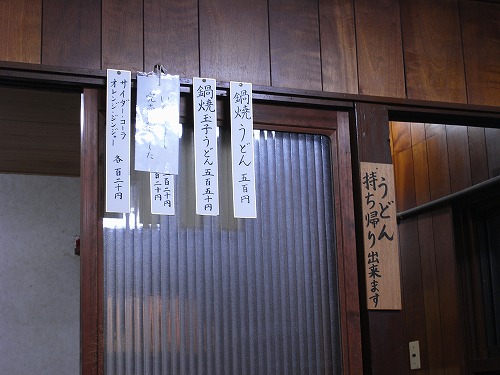 鍋焼うどん 五百円
鍋焼玉子うどん 五百五十円
売り切れました
百二十円
サイダー・コーラ
オレンジ・ジンジャー 各 百二十円
うどん
持ち帰り出来ます